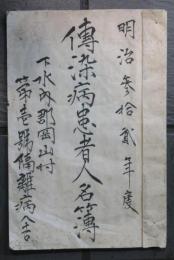 明治参拾貳年度
傳染病患者人名簿
下水内郡岡山村
第壱號偏離病舎